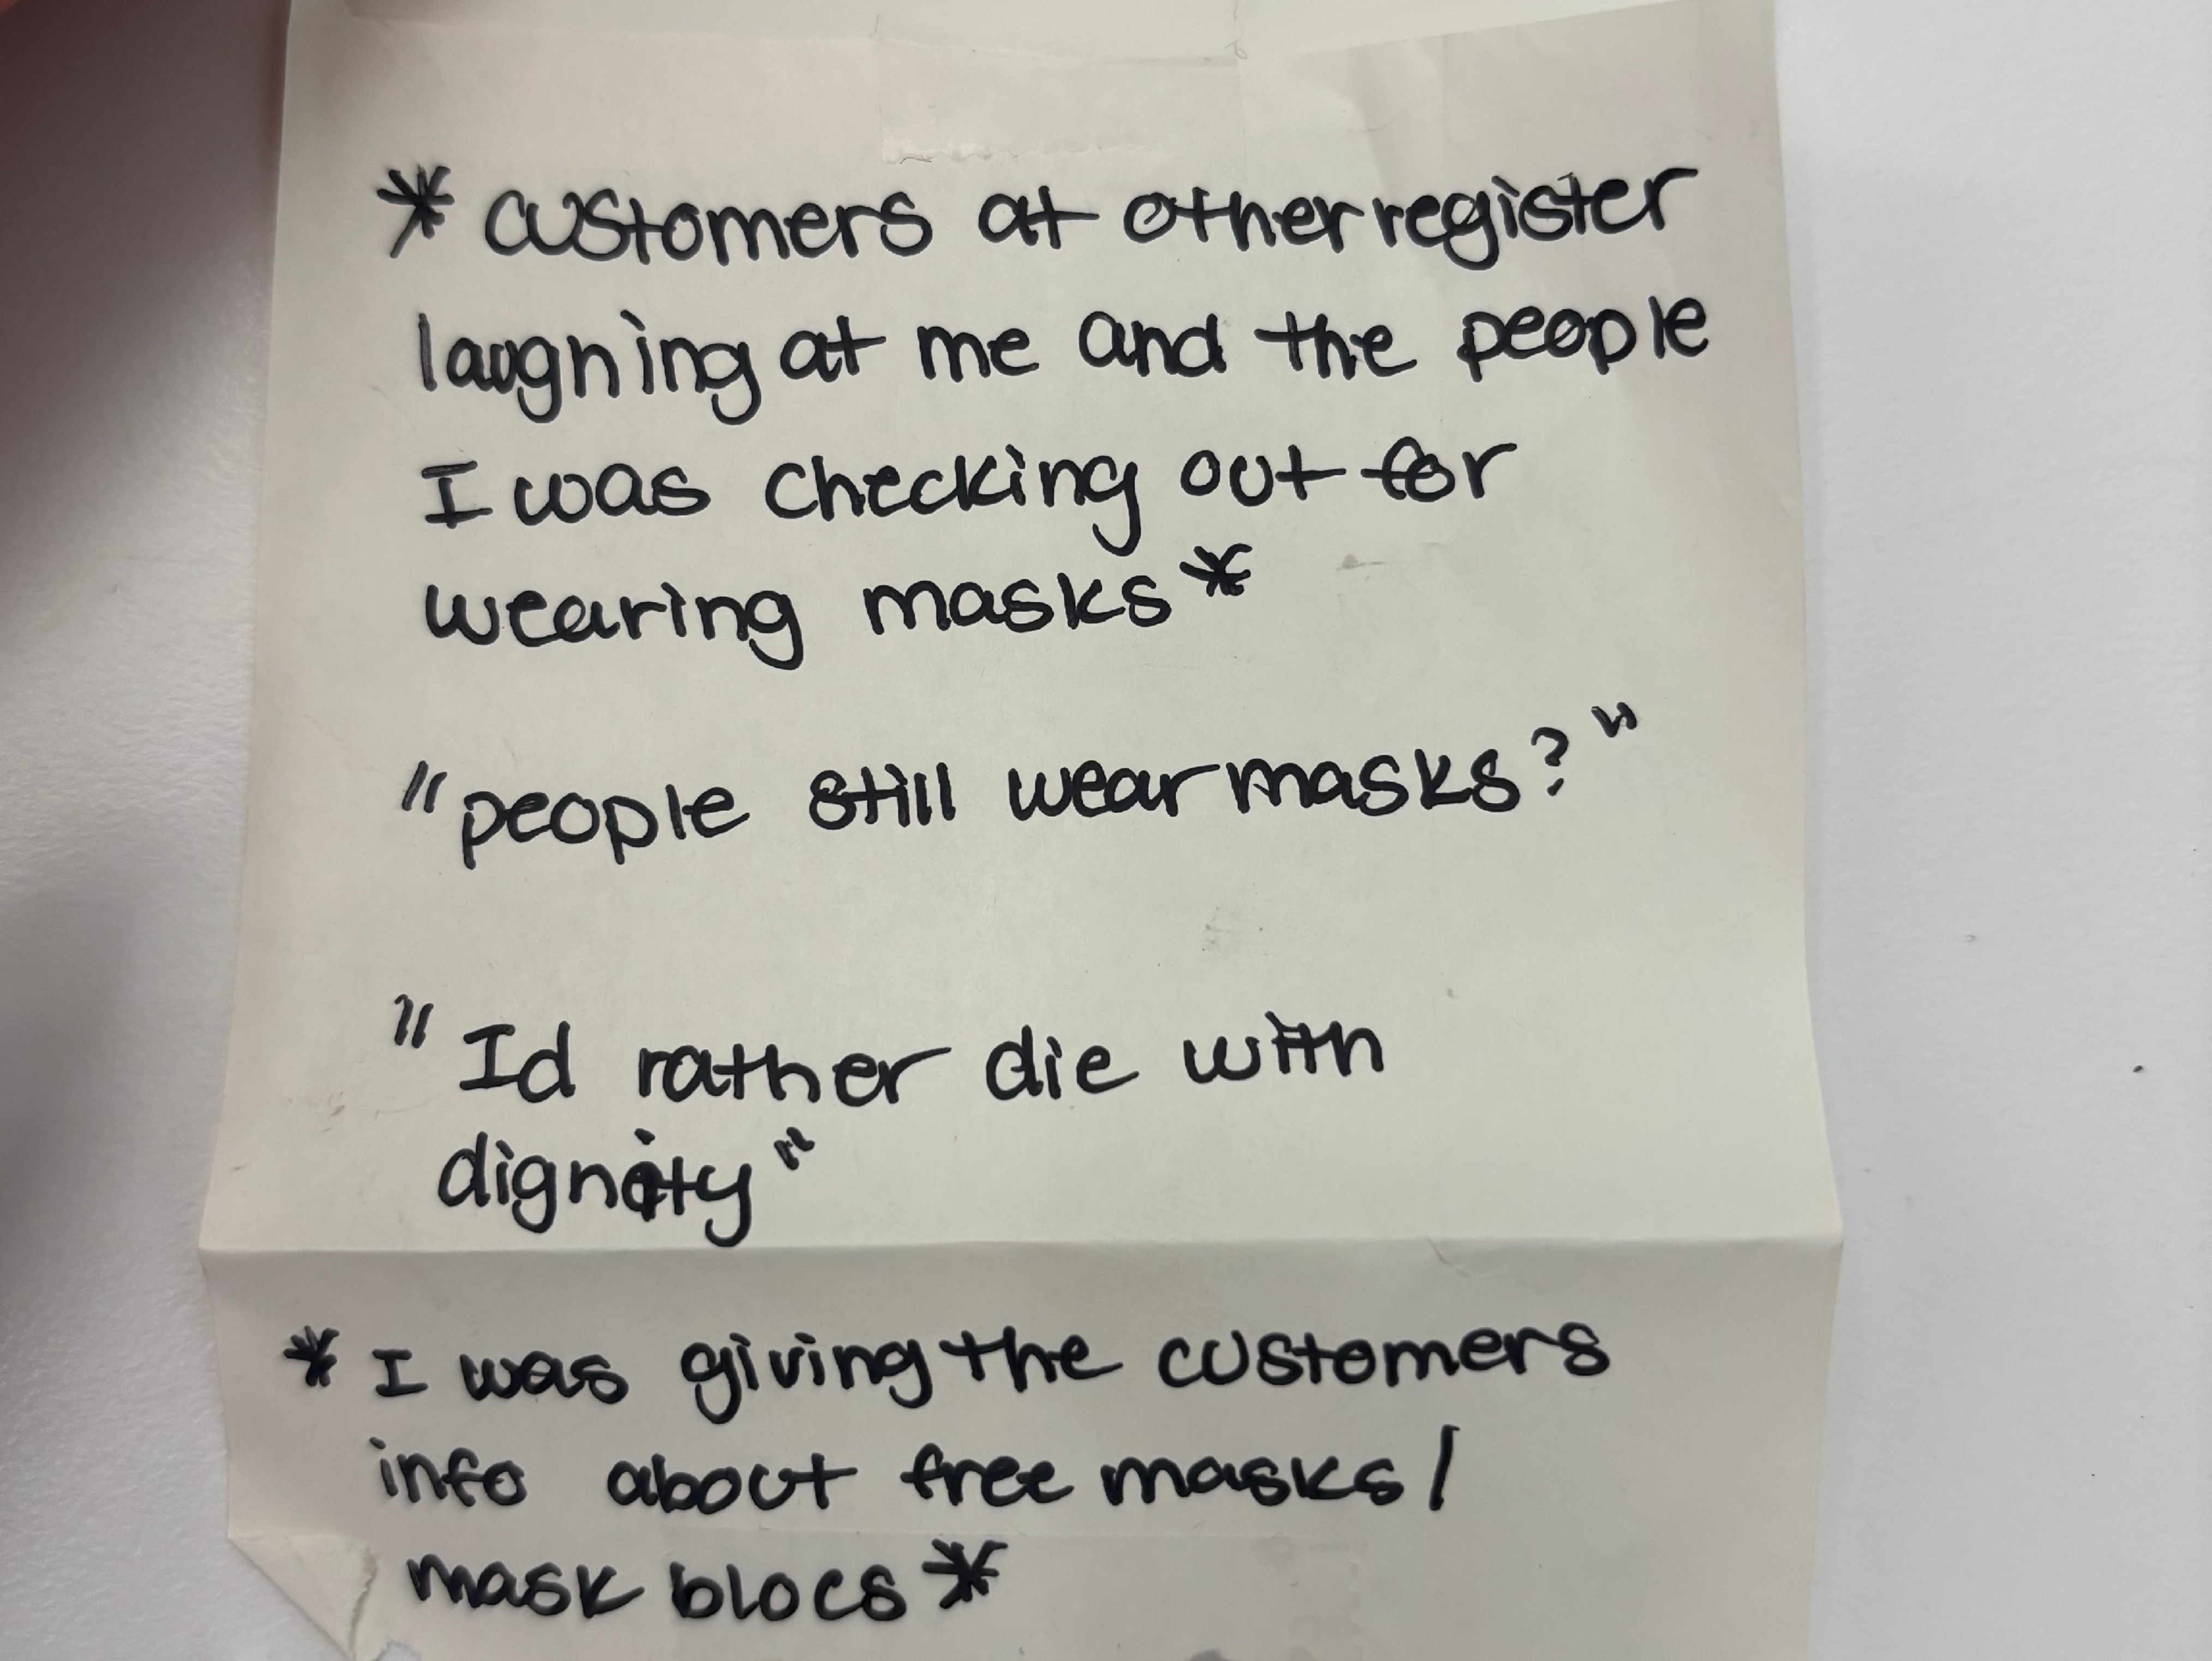 * customers at other register
laughing at me and the people
I was checking out for
wearing masks *
"people still wear masks?"
"Id rather die with
dignity"
* I was giving the customers
info about free masks/
mask blocs *